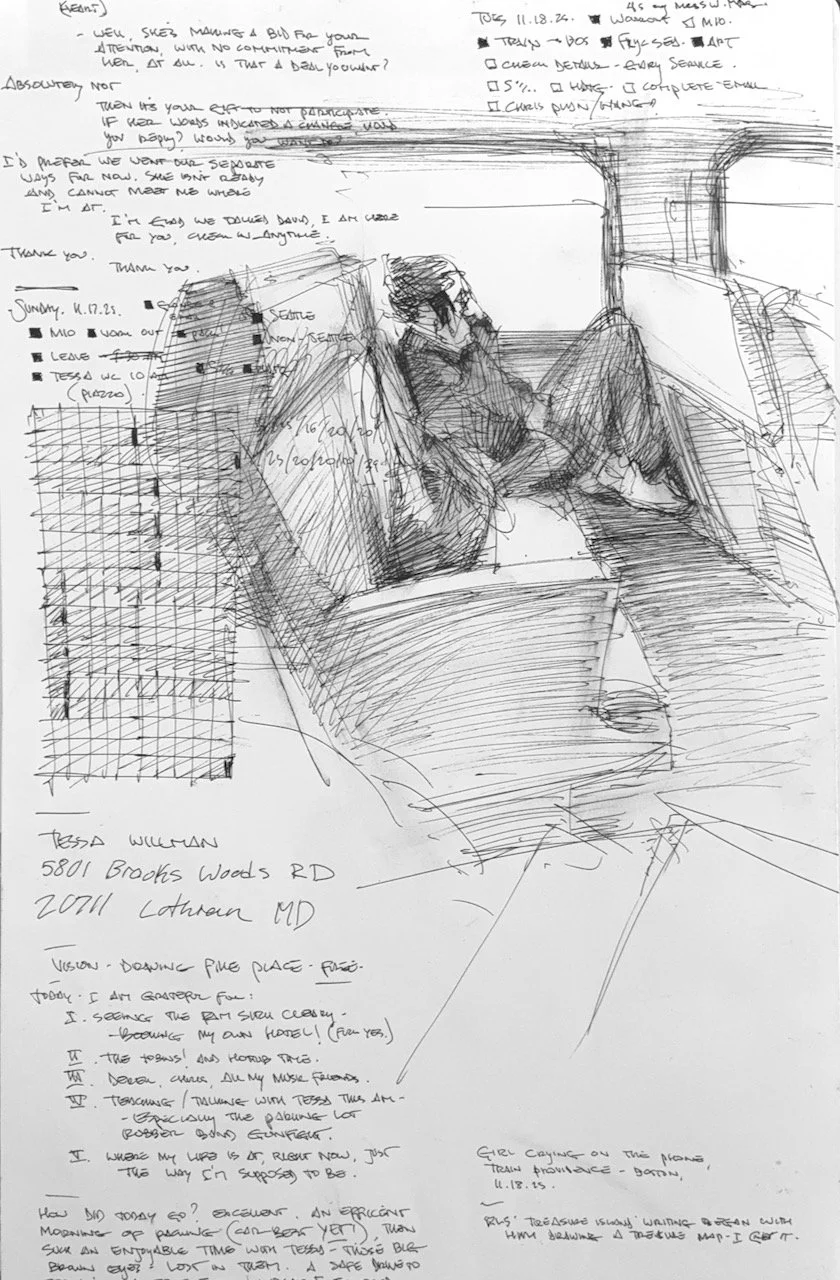 (HEART)
- WELL, SHE'S MAKING A BID FOR YOUR
ATTENTION, WITH NO COMMITMENT FROM
HER, AT ALL. IS THAT A DEAL YOU WANT?
ABSOLUTELY NOT
THEN IT'S YOUR RIGHT TO NOT PARTICIPATE
IF HER WORDS INDICATED A CHANGE, WOULD
YOU REPLY? WOULD YOU WANT TO?
I'D PREFER WE WENT OUR SEPARATE
WAYS FOR NOW. SHE ISN'T READY
AND CANNOT MEET ME WHERE
I'M AT.
I'M GLAD WE TALKED DAVID, I AM HERE
FOR YOU, CHECK IN ANYTIME.
THANK YOU.
THANK YOU.
TUES 11.18.25. WORKOUT M10.
TRAIN → BOS APT
CHECK DETAILS - SERVICE.
5%. COMPLETE EMAIL
CHRIS
SUNDAY. 11.17.25.
SEATTLE
M10 WORK OUT PACK
NON-SEATTLE
LEAVE
TESSA WC 10 AM
(PIAZZO)
TESSA WILLMAN
5801 Brooks Woods RD
20711 Lothian MD
VISION - DRAWING PIKE PLACE - FREE-
TODAY - I AM GRATEFUL FOR:
I. SEEING THE CLEARLY -
- BOOKING MY OWN HOTEL! (FUCK YES.)
II. THE TOBINS! AND HOTUB TIME.
III. DEREK, CHRIS, ALL MY MUSIC FRIENDS.
IV. TEACHING / TALKING WITH TESSA THIS AM -
- ESPECIALLY THE PARKING LOT
RUBBER BAND GUNFIGHT.
V. WHERE MY LIFE IS AT, RIGHT NOW, JUST
THE WAY I'M SUPPOSED TO BE.
HOW DID TODAY GO? EXCELLENT. AN EFFICIENT
MORNING OF PACKING (CAR-BEST YET!), THEN
SUCH AN ENJOYABLE TIME WITH TESSA - THOSE BIG
BROWN EYES - LOST IN THEM. A SAFE DRIVE TO
GIRL CRYING ON THE PHONE,
TRAIN PROVIDENCE - BOSTON,
11.18.25.
RLS' 'TREASURE ISLAND' WRITING BEGAN WITH
HIM DRAWING A TREASURE MAP - I GET IT.